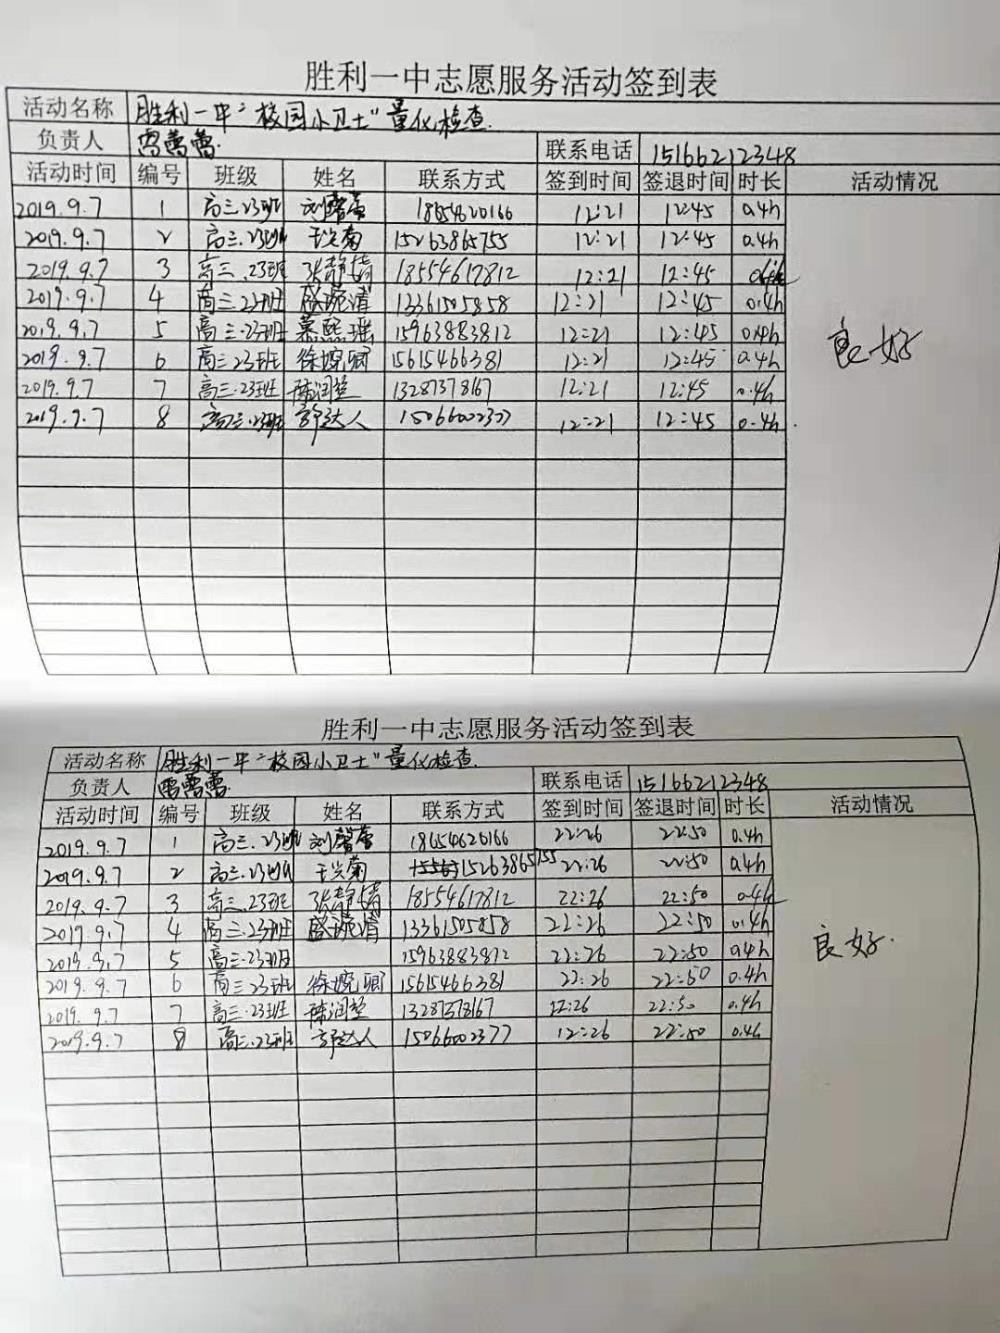 胜利一中志愿服务活动签到表
活动名称 胜利一中"校园小卫士"量化检查.
负责人 雷蕾蕾. 联系电话 15166212348
活动时间 编号 班级 姓名 联系方式 签到时间 签退时间 时长 活动情况
2019.9.7 1 高三.23班 刘馨蕾 18654620166 12:21 12:45 0.4h
2019.9.7 2 高三.23班 于兴菊 15263865755 12:21 12:45 0.4h
2019.9.7 3 高三.23班 张静情 18554617812 12:21 12:45 0.4h
2019.9.7 4 高三.23班 盛琬清 13361505858 12:21 12:45 0.4h
2019.9.7 5 高三.23班 慕熙瑶 15963883812 12:21 12:45 0.4h
良好
2019.9.7 6 高三.23班 徐婉卿 15615466381 12:21 12:45 0.4h
2019.9.7 7 高三.23班 陈润莹 13287378167 12:21 12:45 0.4h
2019.9.7 8 高三.23班 达人 15066002377 12:21 12:45 0.4h.
胜利一中志愿服务活动签到表
活动名称 胜利一中"校园小卫士"量化检查.
负责人 雷蕾蕾. 联系电话 15166212348
活动时间 编号 班级 姓名 联系方式 签到时间 签退时间 时长 活动情况
2019.9.7 1 高三.23班 刘馨蕾 18654620166 22:26 22:50 0.4h
2019.9.7 2 高三.23班 于兴菊 15263865755 22:26 22:50 0.4h
2019.9.7 3 高三.23班 张静情 18554617812 22:26 22:50 0.4h
2019.9.7 4 高三.23班 盛琬清 13361505858 22:26 22:50 0.4h
良好.
2019.9.7 5 高三.23班 15963883812 22:26 22:50 0.4h
2019.9.7 6 高三.23班 徐婉卿 15615466381 22:26 22:50 0.4h
2019.9.7 7 高三.23班 陈润莹 13287378167 12:26 22:50 0.4h
2019.9.7 8 高三.23班 达人 15066002377 12:26 22:50 0.4h